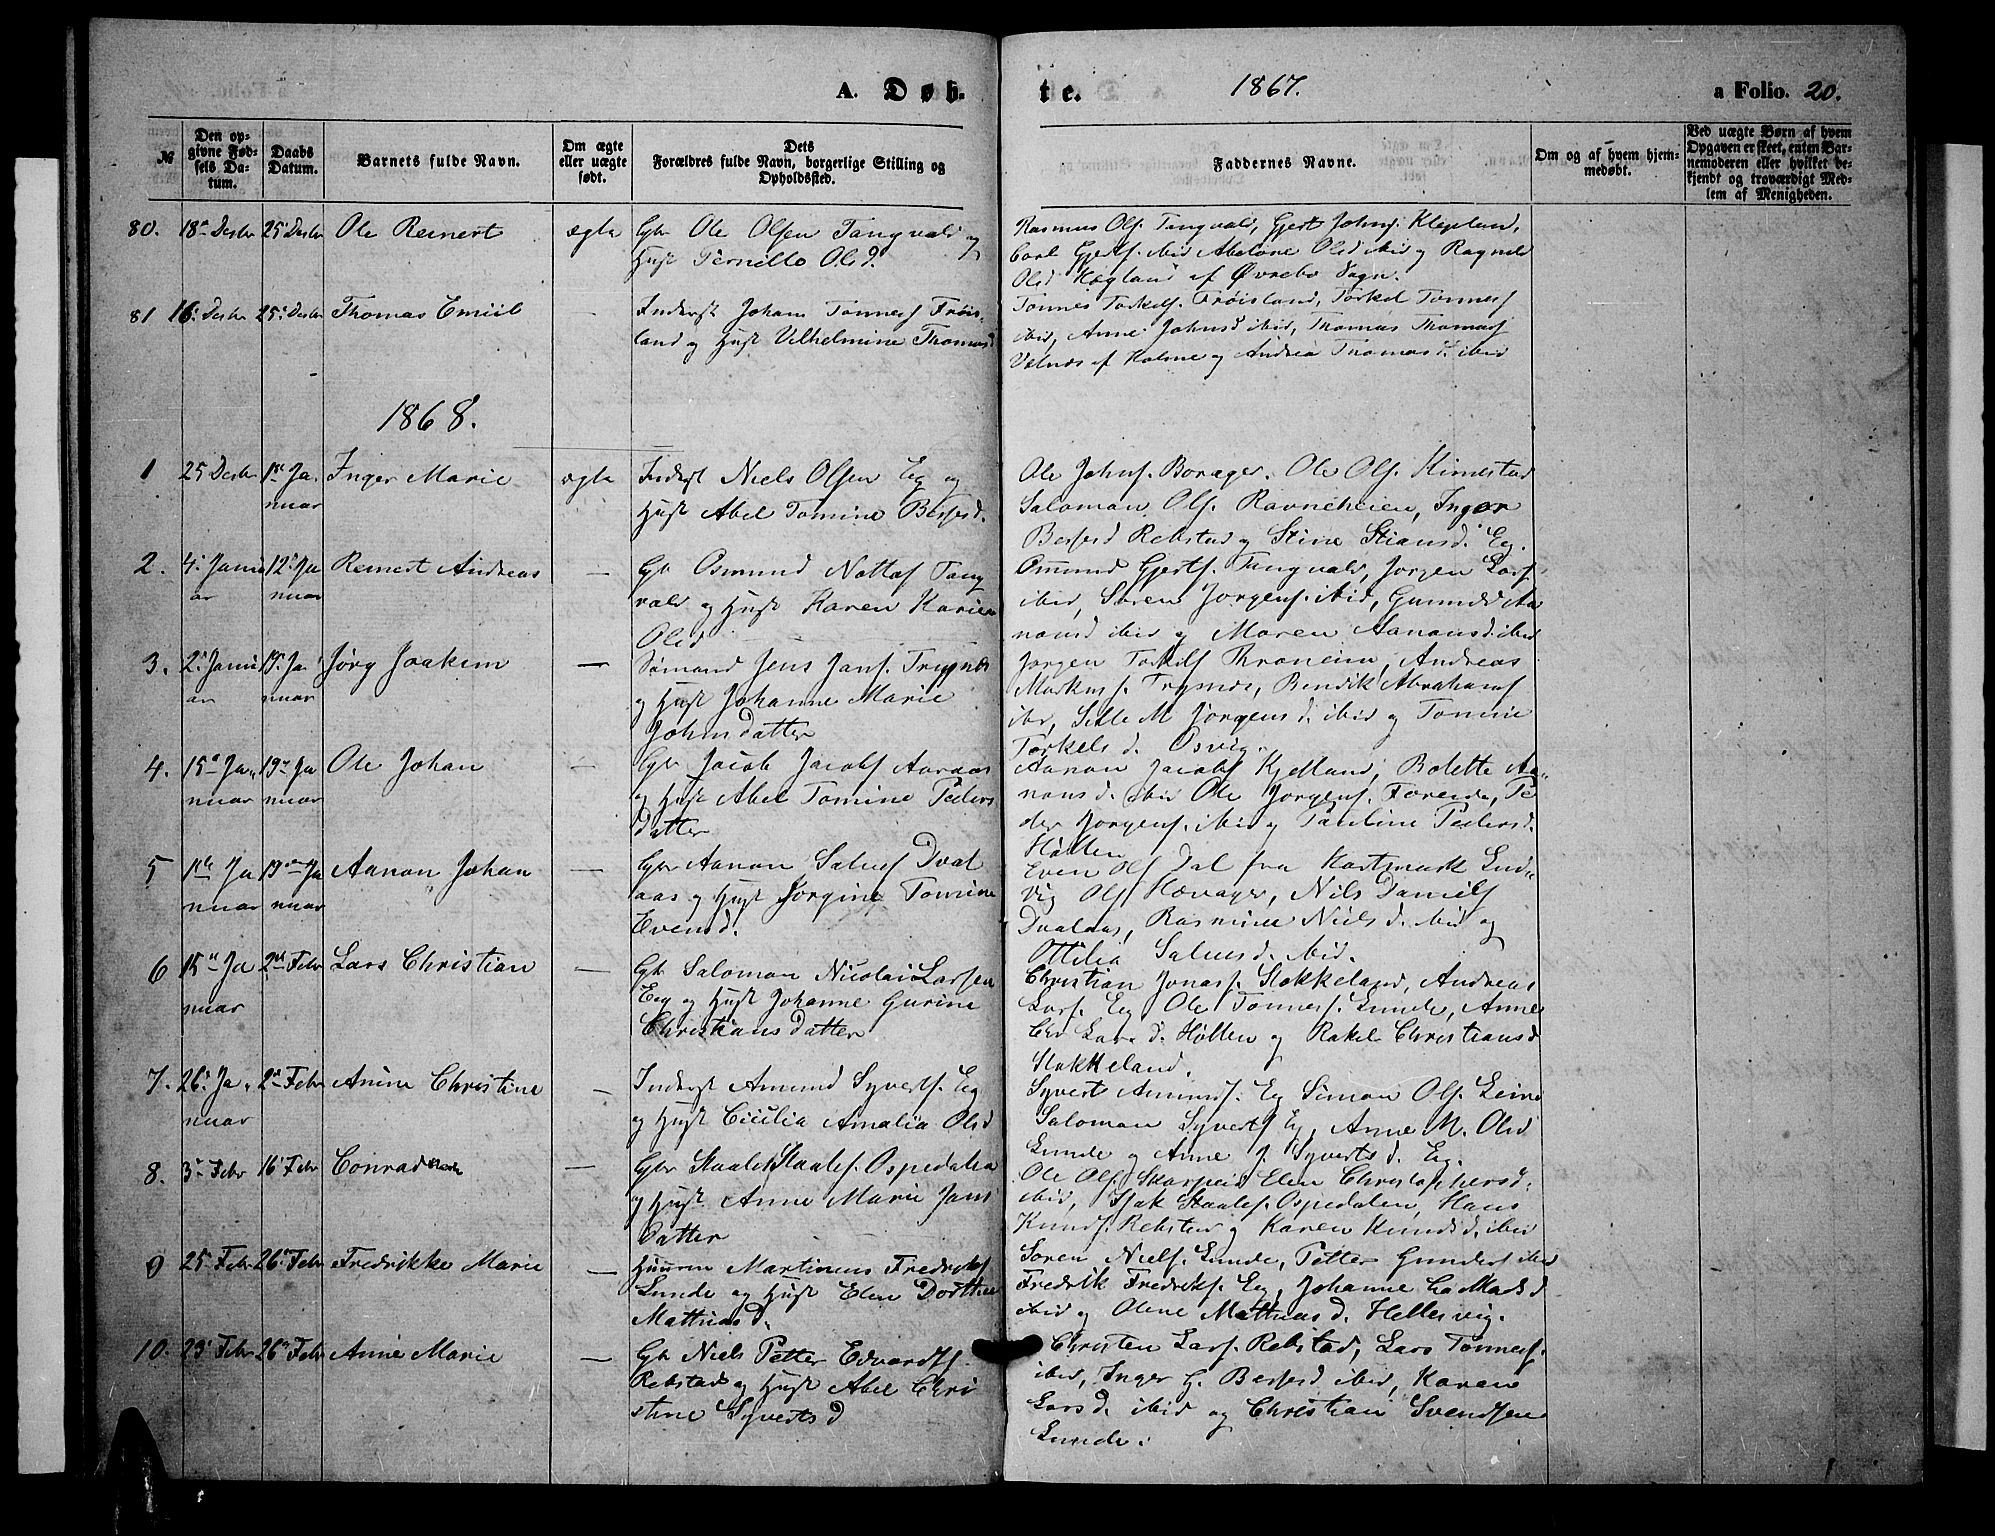 A. Døb-
te.
1867.
a Folio. 20.
№
Den op-
givne Fød-
sels Da-
tum.
Daabs
Datum.
Barnets fulde Navn.
Om ægte
eller uægte
født.
Dets
Forældres fulde Navn, borgerlige Stilling og
Opholdssted.
Faddernes Navne.
Om og af hvem hjem-
medøbt.
Ved uægte Børn af hvem
Opgaven er skeet, enten Bar-
nemoderen eller hvilket be-
kjendt og troværdigt Med-
lem af Menigheden.
80. 18de Desbr 25 Desbr Ole Reinert ægte Gbr Ole Olsen Tangvald og
Hust Pernille Olsd.
Rasmus Ols. Tangvald, Gjert Johns. Klepland,
Carl Gjerts. ibid Abelone Olsd ibid og Ragnild
Olsd Høgland af Øvrebø Sogn.
81 16. Desbr 25. Desbr Thomas Emiil — Inderst Johan Tønnes Frøis-
land og Hust Vilhelmine Thomasd
Tønnes Torkels. Frøisland, Torkel Tønnes
ibid, Anne Johnsd ibid, Thomas Thomas
af Holme og Andrea Thomasd. ibid
1868.
1 25 Desbr 1ste Ja-
nuar Inger Marie ægte Inderst Niels Olsen Eg og
Hust Abel Tomine Berfesd.
Ole Johns. Borager. Ole Ols. Kimestad
Saloman Ols. Ravneheien, Inger
Berfesd Rebstad og Stine Stiansd. Eg.
2. 4. Janu
ar 12. Ja
nuar Reinert Andreas — Gbr Osmund Nottof Tang
vald og Hust Karen Karine
Olsd
Ommund Gjerts. Tangvald, Jørgen Lars.
ibid, Søren Jørgens. ibid, Gunnild Aa
nonsd ibid og Maren Aanonsd. ibid
3. 2. Janu
ar 19. Ja
nuar Jørg Joakim — Sømand Jens Jans. Trysnes
og Hust Johanne Marie
Johnsdatter
Jørgen Torkils Throneim, Andreas
Markus s. Trysnes, Bendik Abrahams
ibd, Sille M Jørgensd. ibid og Tomine
Torkelsd. Osvig.
4. 15de Ja-
nuar 19de Ja
nuar Ole Johan — Gbr Jacob Jacobs Aaraas
og Hust Abel Tomine Peders
datter
Aanon Jacobs Kjelland, Bolette Aa-
nonsd. ibid Ole Jørgens. Foreide, Pe
der Jørgens. ibid og Pauline Pedersd.
Holten
5 11te Ja
nuar 19de Ja
nuar Aanon Johan — Gbr Aanon Salves Dval
aas og Hust Jørgine Tomine
Evensd.
Even Ols Dal fra Hartmark Lud-
vig Ols Hævager, Nils Daniels
Dvalaas, Rasmine Nielsd. ibid og
Ottilia Salvesd. ibid.
6 15de Ja
nuar 2den Febr Lars Christian — Gbr Saloman Nicolai Larsen
Eeg og Hust Johanne Gurine
Christiansdatter
Christian Jonas. Stokkeland, Andreas
Lars. Eg Ole Tønnes. Lunde, Anne
Larsd. Holten og Rakel Christiansd
Stokkeland.
7. 26. Ja-
nuar 2den Febr Anine Christine — Inderst Amund Syverts. Eg
og Hust Cicilia Amalia Olsd
Syvert Amunds. Eg Simon Ols. Leire
Saloman Syverts Eg, Anne M. Olsd
Lunde og Anne J. Syvertsd. Eg.
8. 3de Febr 16. Febr Conrad — Gbr Staale Staales. Ospedalen
og Hust Anne Marie Jans
Datter
Ole Ols. Skarpeid Elen Christophersd.
ibid, Isak Staales. Ospedalen, Hans
Knuds. Rebstad og Karen Knudsd. ibid
9 25. Febr 26. Febr Fredrikke Marie — Huusm Martinius Fredriks
Lunde og Hust Elen Dorthea
Mathiasd.
Søren Niels. Lunde, Petter Gunders ibid
Fredrik Fredriks. Eg, Johanne Madsd
ibid og Olene Mathiasd. Hellesvig.
10. 23. Febr 26de Febr Anne Marie — Gbr Niels Petter Edvards
Rebstad og Hust Abel Chri
stine Syvertsd
Christen Lars. Rebstad, Lars Tønnes.
ibid, Inger G. Berfesd ibid, Karen
Larsd. ibid og Christian Svendsen
Lunde.